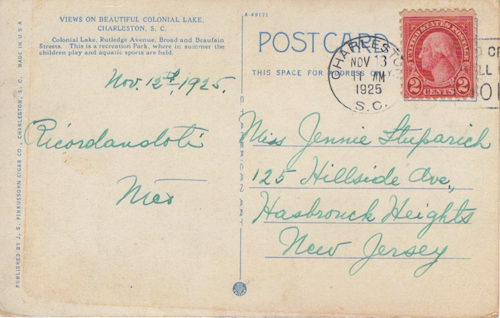 VIEWS ON BEAUTIFUL COLONIAL LAKE,
CHARLESTON, S. C.
Colonial Lake, Rutledge Avenue, Broad and Beaufain
Streets. This is a recreation Park, where in summer the
children play and aquatic sports are held.
Nov. 12th, 1925.
Ricordandoti
Max
PUBLISHED BY J. S. PINKUSSOHN CIGAR CO., CHARLESTON, S. C. MADE IN U S A
A-49171
POST CARD
THIS SPACE FOR ADDRESS ONLY.
CHARLESTON
NOV 13
1925
S.C.
UNITED STATES POSTAGE
2 CENTS 2
Miss Jennie Stuparich
125 Hillside Ave.,
Hasbrouck Heights
New Jersey